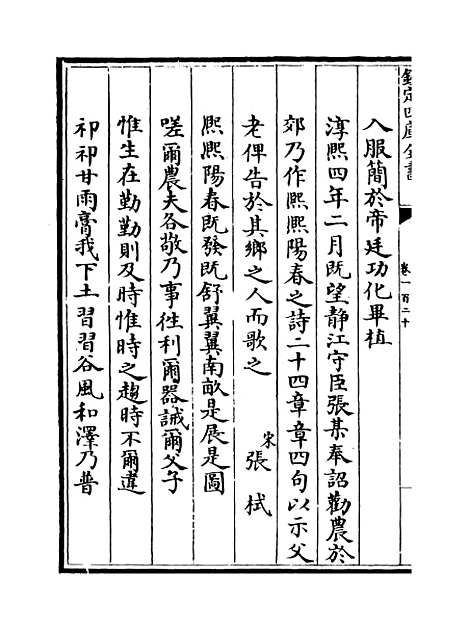 欽定四庫全書
卷一百二十
入服簡於帝廷功化畢植
淳熙四年二月既望静江守臣張某奉詔勸農於
郊乃作熙熙陽春之詩二十四章章四句以示父
老俾告於其鄉之人而歌之
宋 張栻
熙熙陽春既發既舒翼翼南畝是展是圖
嗟爾農夫各敬乃事徃利爾器誡爾父子
惟生在勤勤則及時惟時之趨時不爾違
祁祁甘雨膏我下土習習谷風和澤乃普